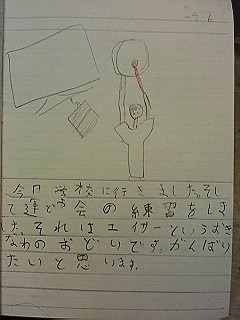 9.6
今日学校に行きましたそし
て運どう会の練習をしま
した。それはエイサーというおき
なわのおどりです。がんばり
たいと思います。